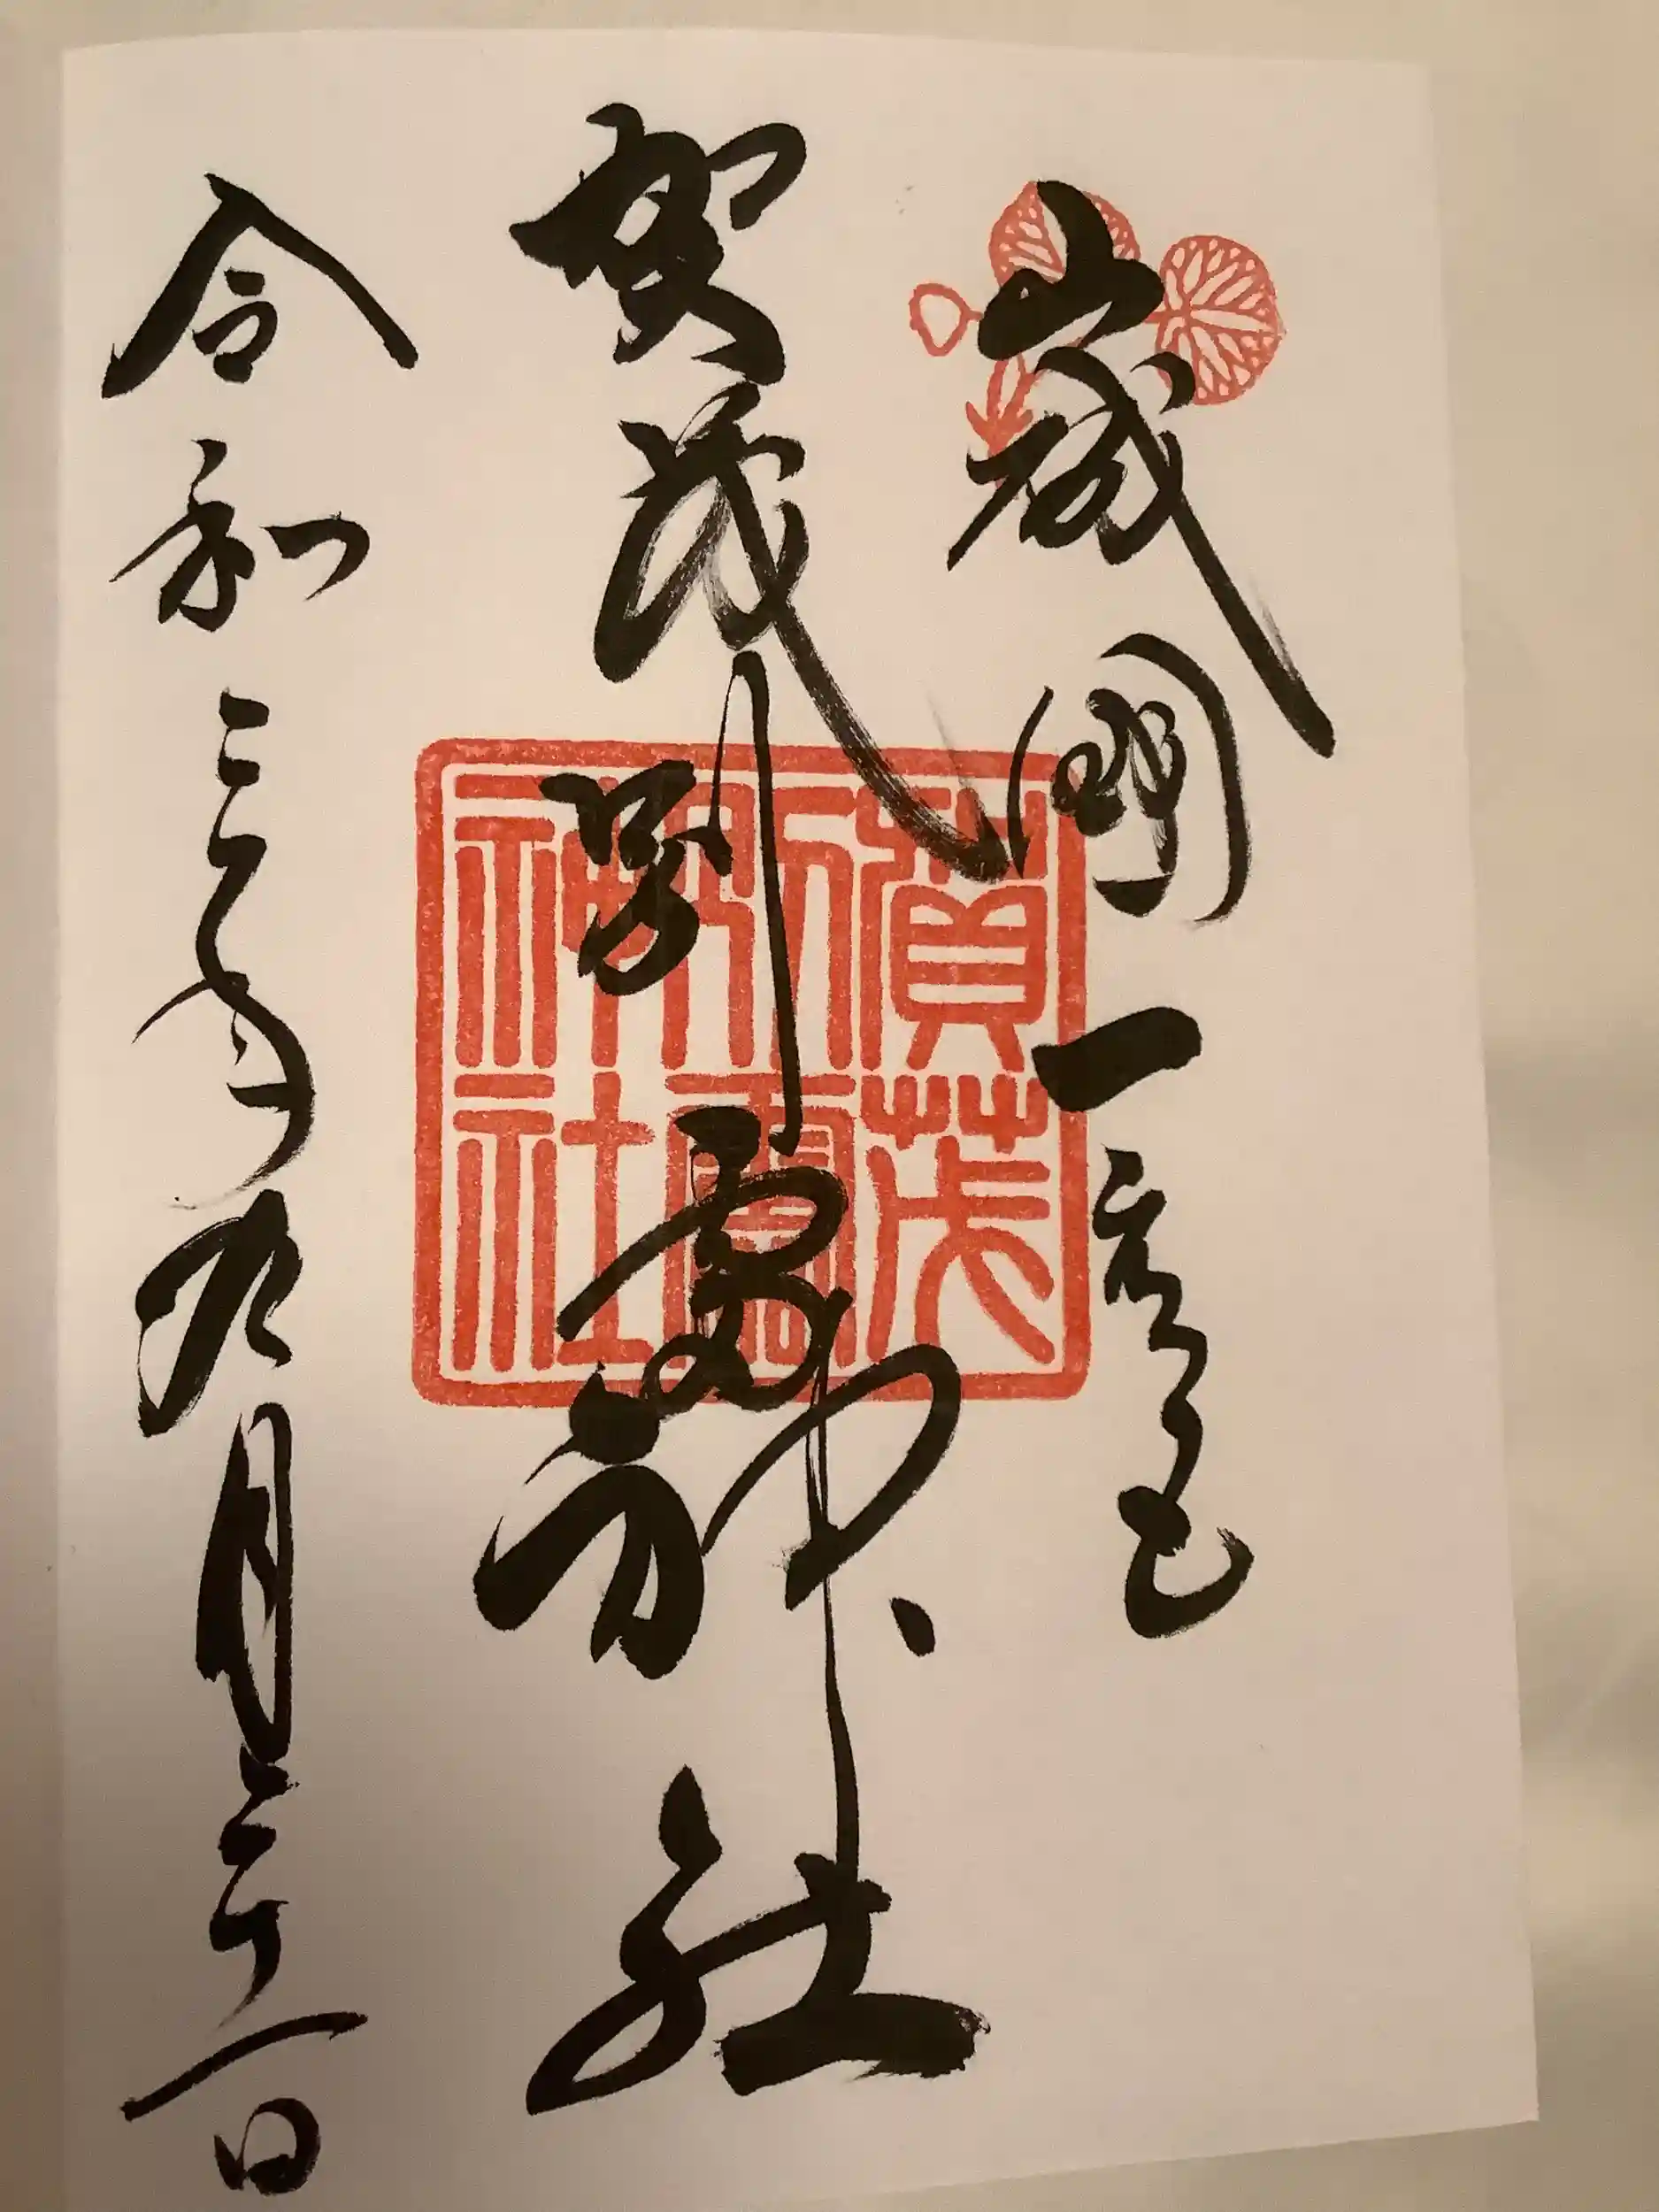 山城國一宮
賀茂別雷神社
令和三年九月二十一日
賀茂
別雷
神社